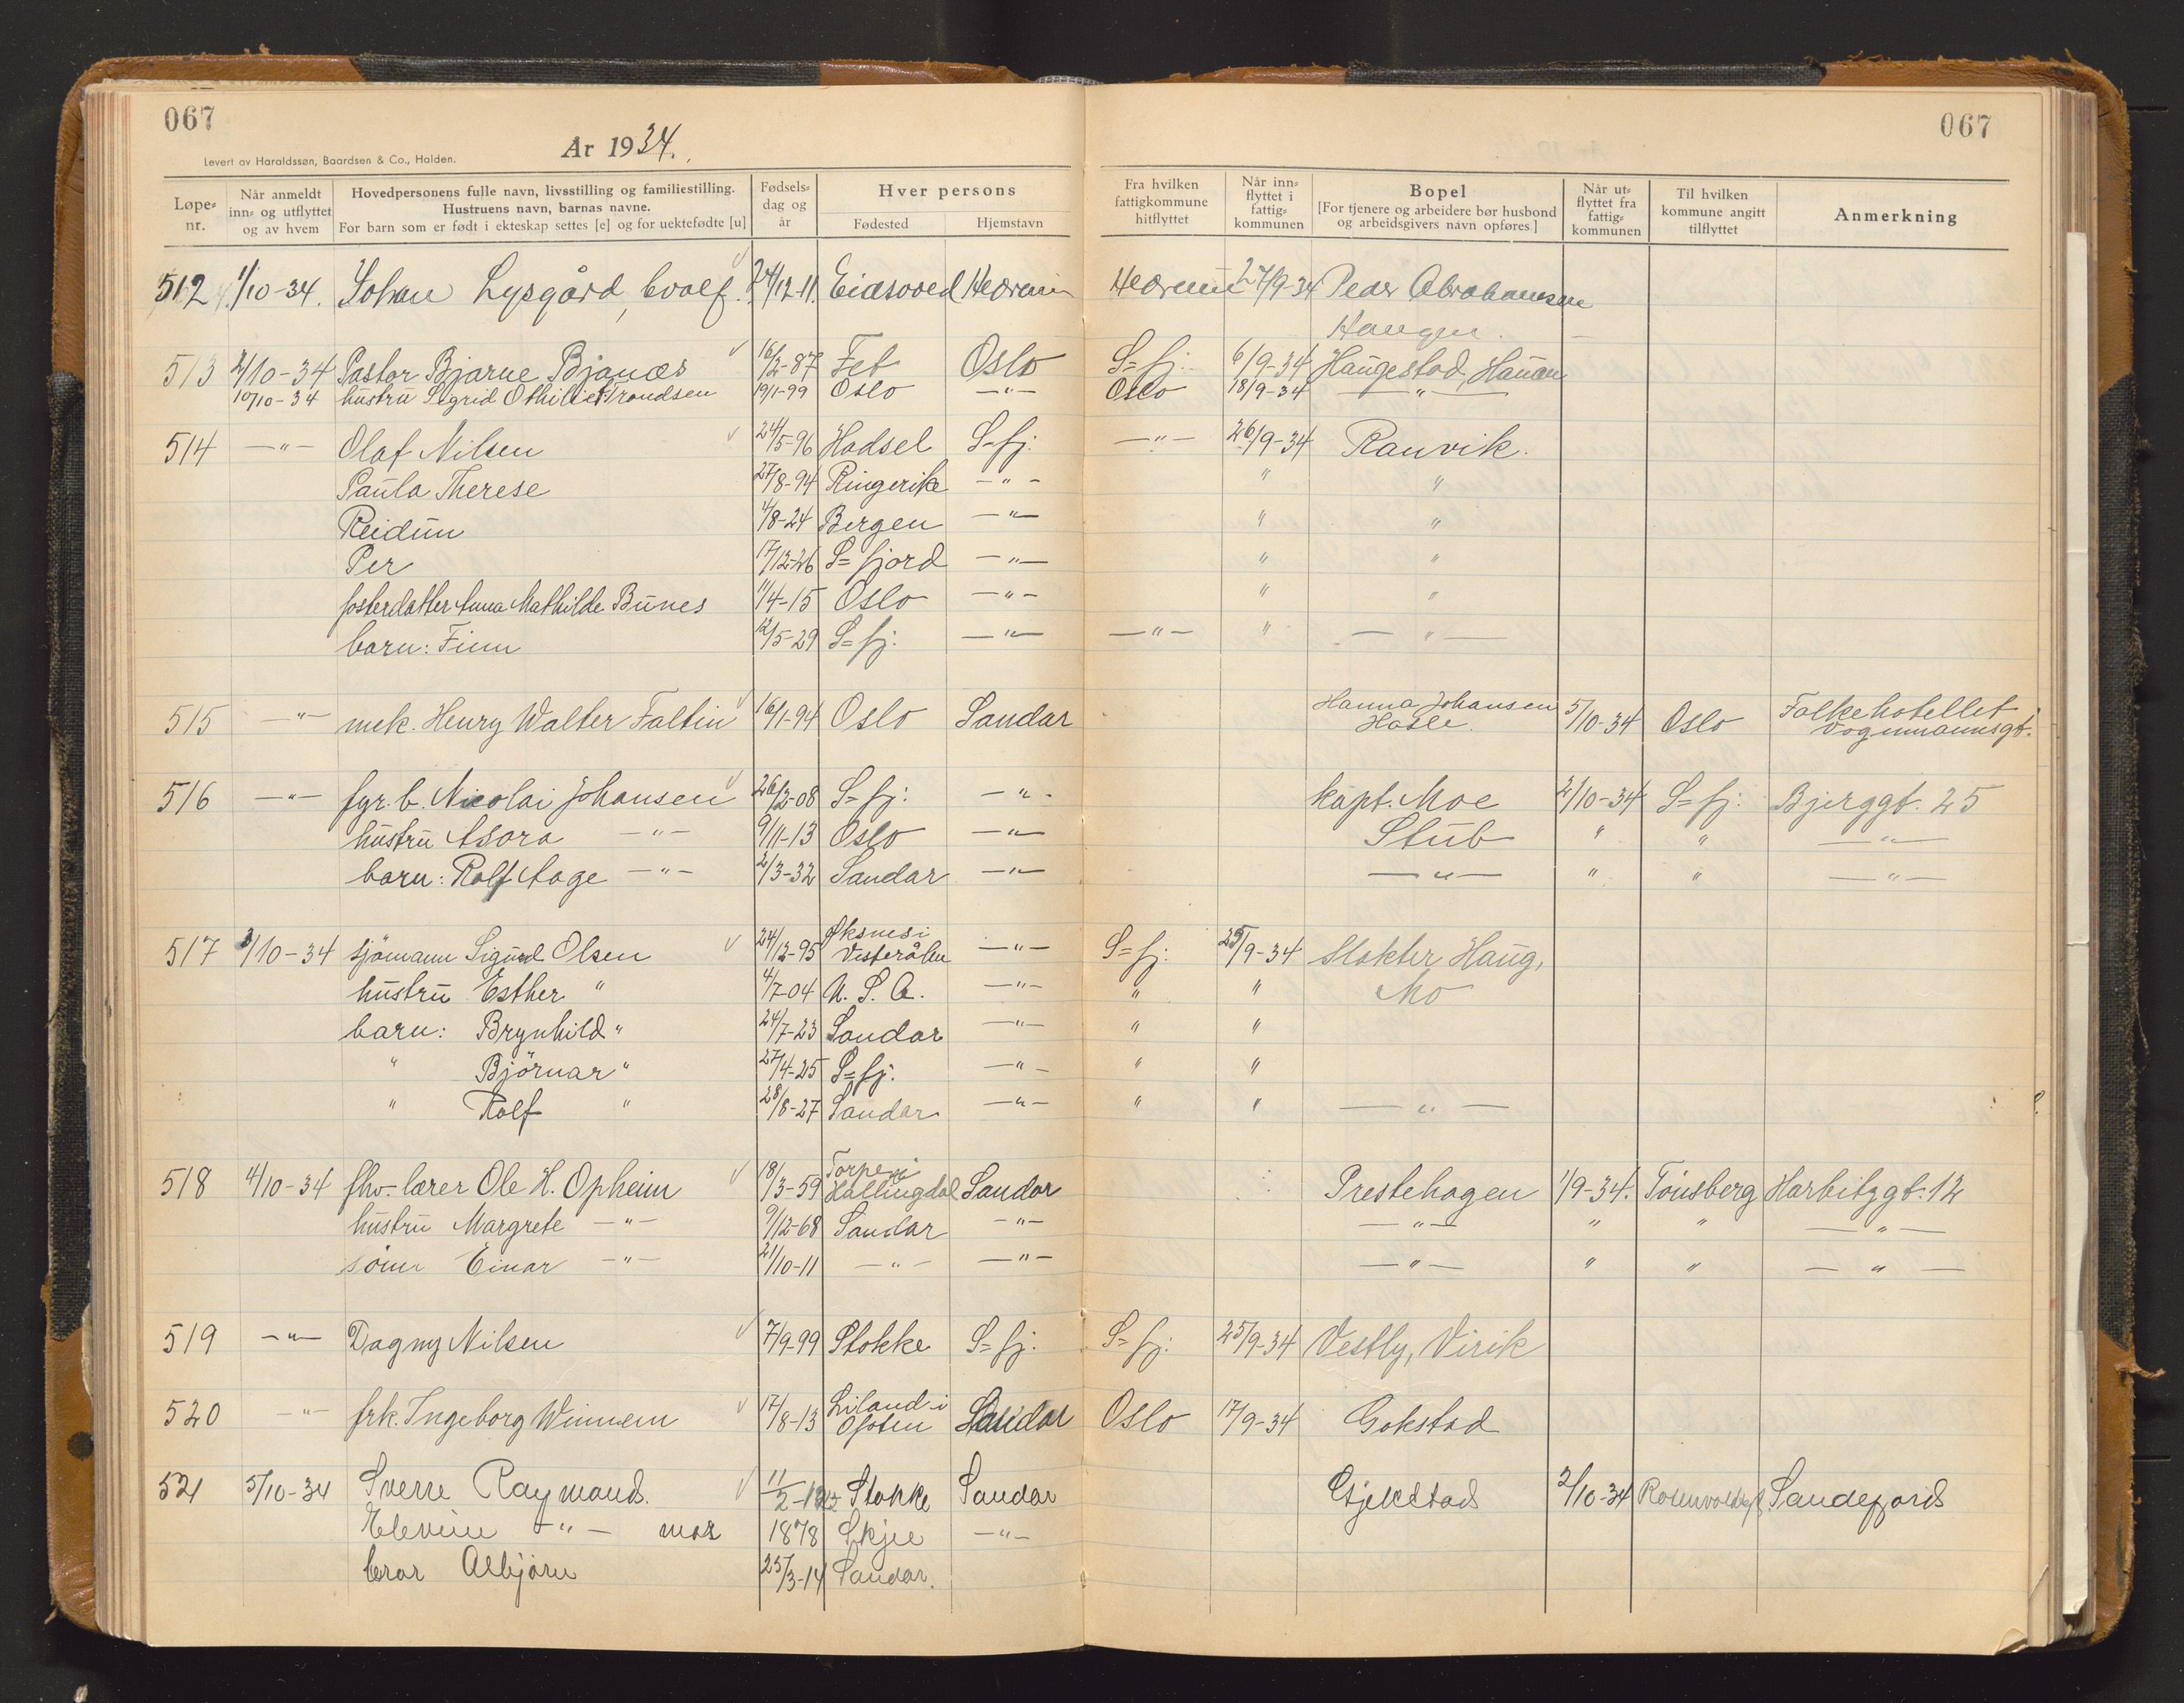 067
067
År 1934.
Levert av Haraldssøn, Baardsen & Co., Halden.
Løpe-nr. | Når anmeldt inn- og utflyttet og av hvem | Hovedpersonens fulle navn, livsstilling og familiestilling. Hustruens navn, barnas navne. For barn som er født i ekteskap settes [e] og for uektefødte [u] | Fødsels-dag og år | Hver persons Fødested | Hjemstavn | Fra hvilken fattigkommune hitflyttet | Når inn-flyttet i fattig-kommunen | Bopel [For tjenere og arbeidere bør husbond og arbeidsgivers navn opføres] | Når ut-flyttet fra fattig-kommunen | Til hvilken kommune angitt tilflyttet | Anmerkning
512 1/10-34. Johan Lysgård, 24/12-11. Eidsvoed Hedrum Hedrum 27/9-34 Peder Abrahamsen
Haugen.
513 2/10-34 Pastor Bjarne Bjanæs 16/2-87 Fet Oslo S=fj: 6/9-34 Haugestad, Hauan
10/10-34 hustru Sigrid Othilie Trondsen 19/1-99 Oslo —"— Oslo 18/9-34 —"—
514 —"— Olaf Nilsen 24/5-96 Hadsel S=fj: —"— 26/9-34 Ranvik.
Paula Therese 27/8-94 Ringerike —"— " "
Reidun 4/8-24 Bergen —"— " "
Per 17/12-26 S=fjord —"— " "
fosterdatter Anna Mathilde Bunes 11/4-15 Oslo —"— " "
barn: Finn 12/5-29 S=fj: —"— —"— " —"—
515 —"— mek. Henry Walter Faltin 16/1-94 Oslo Sandar Hanna Johansen Hasle. 5/10-34 Oslo Folkehotellet Vognmannsgt.
516 —"— fyr.b. Nicolai Johansen 26/2-08 S=fj: —"— kapt. Moe 2/10-34 S=fj: Bjerggt. 25
hustru Asora —"— 9/11-13 Oslo —"— Stub " " —"—
barn: Rolf Aage —"— 2/3-32 Sandar —"— —"— " " —"—
517 3/10-34 sjömann Sigurd Olsen 24/12-95 Øksnes i Vesterålen —"— S=fj: 25/9-34 slakter Haug,
hustru Esther " 4/7-04 U.S.A. —"— " " Mo
barn: Brynhild " 24/7-23 Sandar —"— " "
" Björnar " 27/4-25 S=fj. —"— " "
" Rolf " 28/8-27 Sandar —"— " " —"—
518 4/10-34 fhv. lærer Ole H. Opheim 18/3-59 Torpe i Hallingdal Sandar Prestehagen 1/9-34. Tönsberg Harbitzgt. 12
hustru Margrete —"— 9/12-68 Sandar —"— —"— " " —"—
sönn Einar —"— 21/10-11 —"— —"— —"— " " —"—
519 —"— Dagny Nilsen 7/9-99 Stokke S=fj: S=fj: 25/9-34 Vestly, Virik
520 —"— frk. Ingeborg Winnem 17/8-13 Liland i Ofoten Sandar Oslo 17/9-34 Gokstad
521 5/10-34 Sverre Raymond. 11/2-12 Stokke Sandar Gjekstad 2/10-34 Rosenvoldsgt. Sandefjord
Elevine —"— mor 1878 Skjee —"—
bror Asbjørn 25/3-14 Sandar.